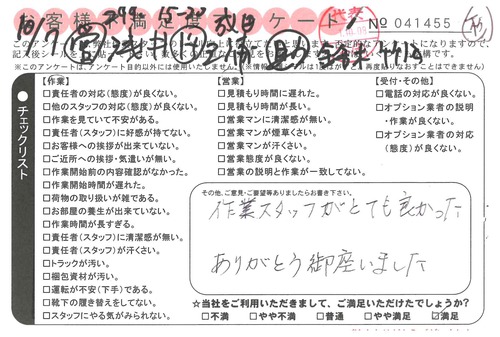 お客様満足度アンケート
No 041455
※このアンケートは、アンケート目的以外には使用いたしません。
チェックリスト
【作業】
□責任者の対応(態度)が良くない。
□他のスタッフの対応(態度)が良くない。
□作業を見ていて不安がある。
□責任者(スタッフ)に好感が持てない。
□お客様への挨拶が出来ていない。
□ご近所への挨拶・気遣いが無い。
□作業開始前の内容確認がなかった。
□作業開始時間が遅れた。
□荷物の取り扱いが雑である。
□お部屋の養生が出来ていない。
□作業時間が長すぎる。
□責任者(スタッフ)に清潔感が無い。
□責任者(スタッフ)が汗くさい。
□トラックが汚い。
□梱包資材が汚い。
□運転が不安(下手)である。
□靴下の履き替えをしてない。
□スタッフにやる気がみられない。
【営業】
□見積もり時間に遅れた。
□見積もり時間が長い。
□営業マンに清潔感が無い。
□営業マンが煙草くさい。
□営業マンが汗くさい。
□営業態度が良くない。
□営業の説明と作業が一致してない。
【受付・その他】
□電話の対応が良くない。
□オプション業者の説明
・作業が良くない。
□オプション業者の対応
(態度)が良くない。
その他、ご意見・ご要望等ありましたらお書き下さい。
作業スタッフがとても良かった
ありがとう御座いました
☆当社をご利用いただきまして、ご満足いただけたでしょうか?
□不満 □やや不満 □普通 □やや満足 ☑満足